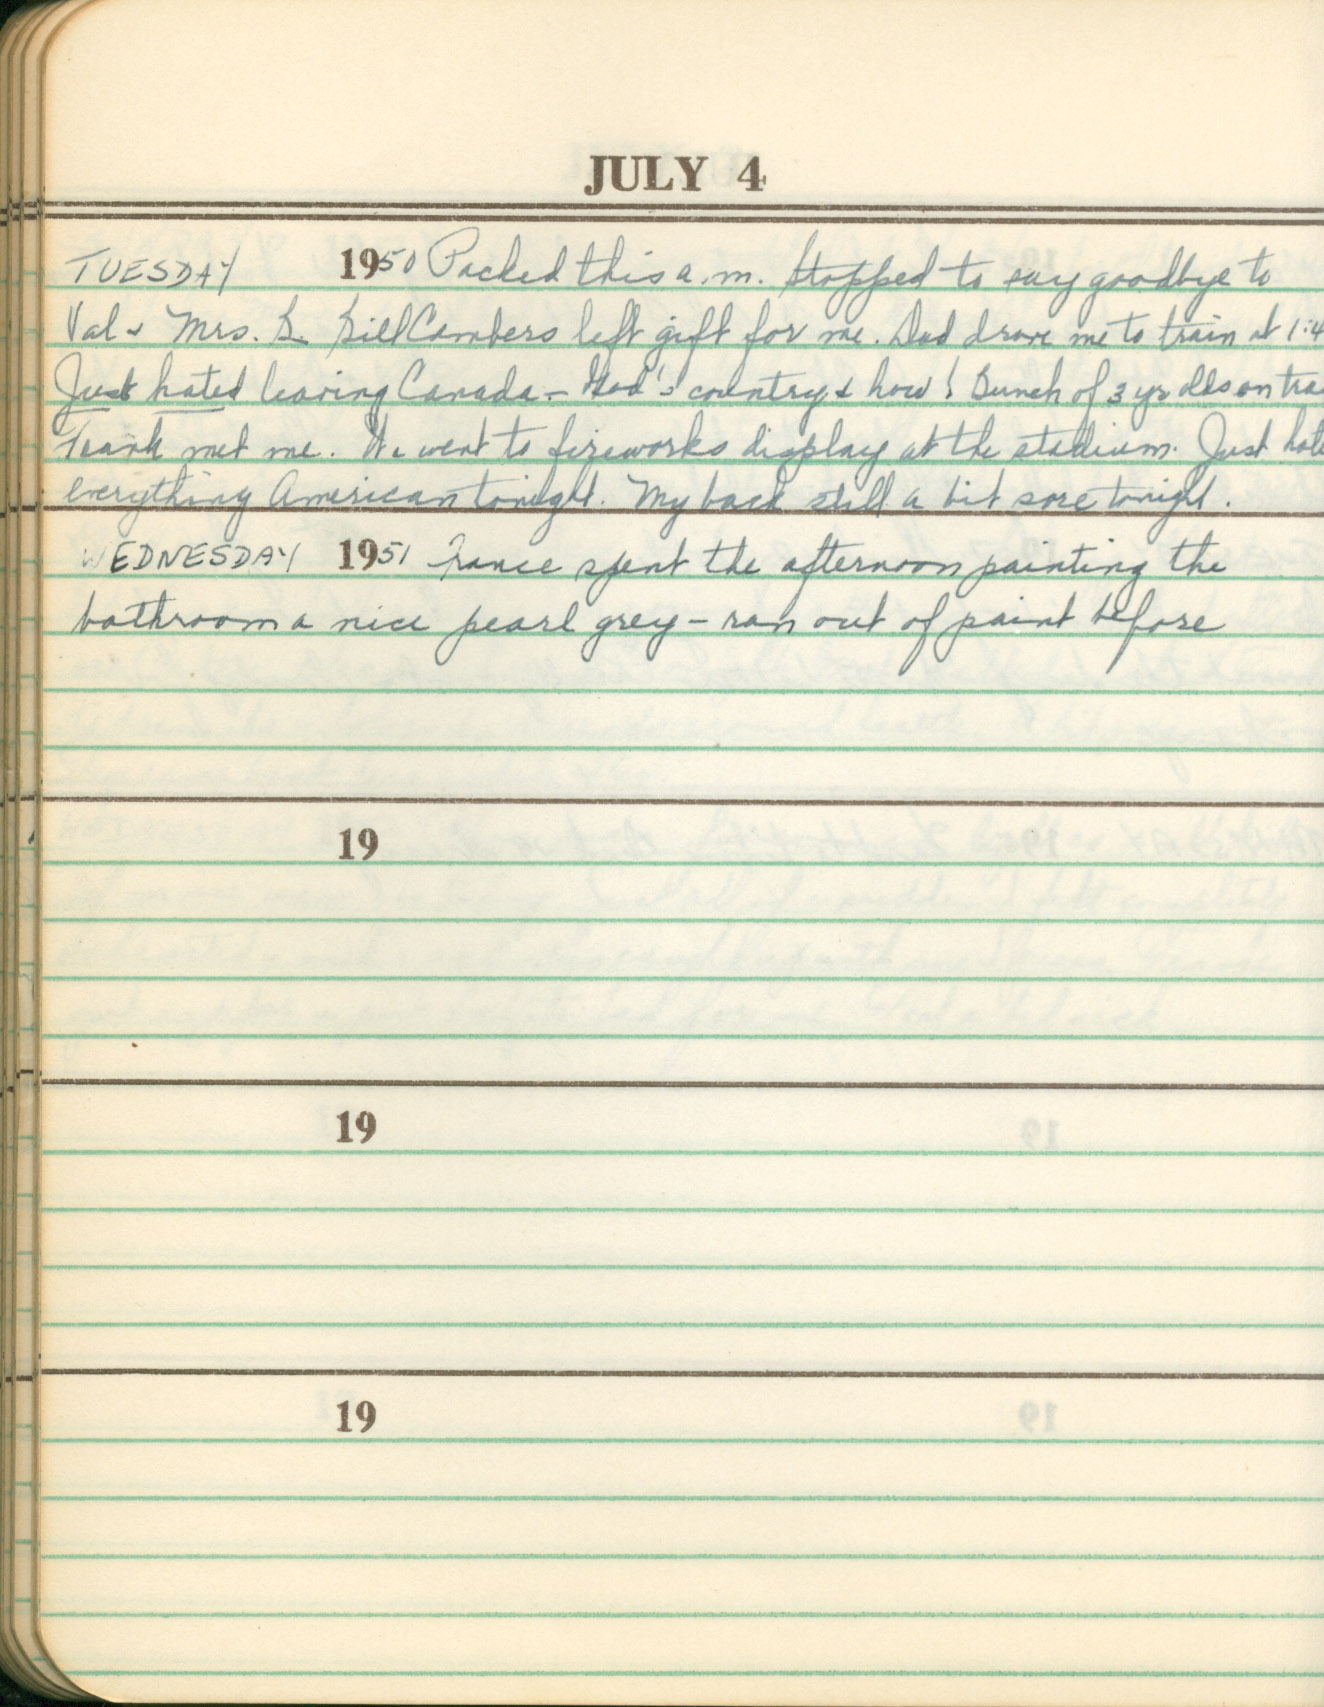 JULY 4
TUESDAY 1950 Packed this a.m. Stopped to say goodbye to
Val & Mrs. B. Bill Cambers left gift for me. Dad drove me to train at 1:4
Just hated leaving Canada – God's country & how! Bunch of 3 yr olds on tra
Frank met me. We went to fireworks display at the stadium. Just hate
everything American tonight. My back still a bit sore tonight.
WEDNESDAY 1951 France spent the afternoon painting the
bathroom a nice pearl grey – ran out of paint before
19
19
19